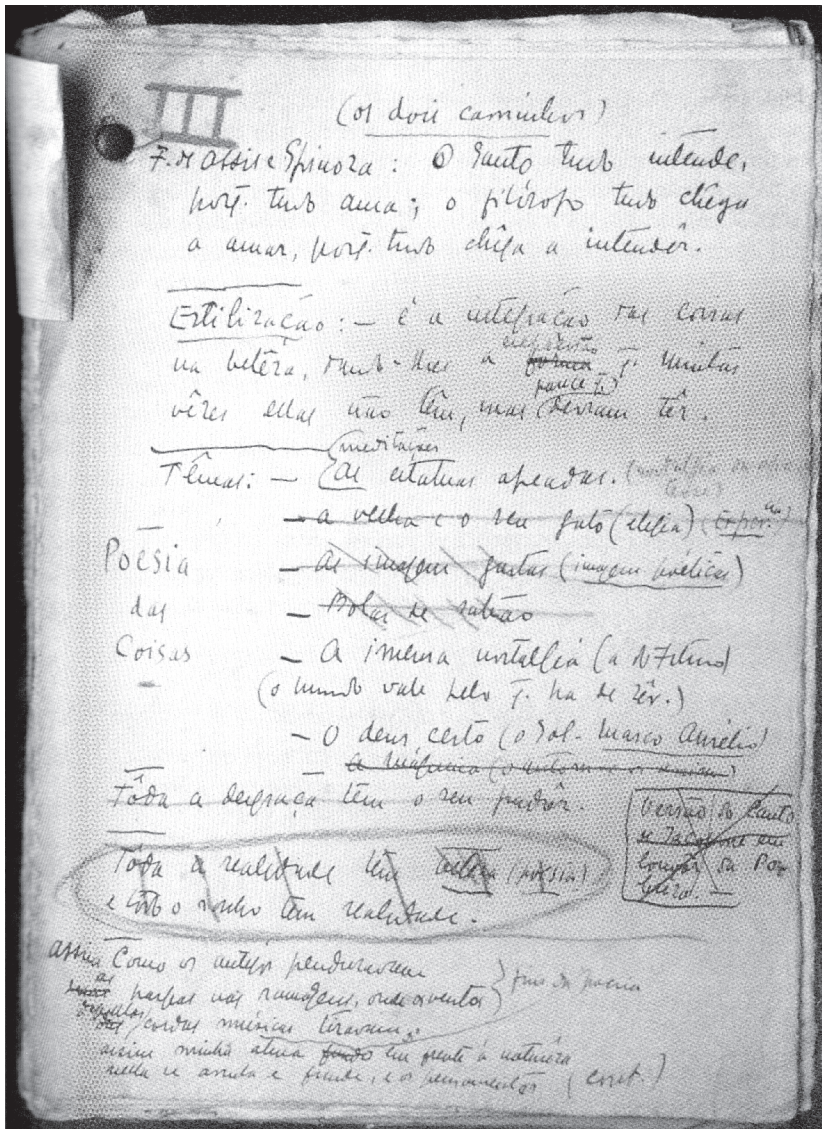 (os dois caminhos)
F. de Assis e Spinoza: O Santo tudo intende,
porq. tudo ama; o filósofo tudo chega
a amar, porq. tudo chega a intendêr.
Estilização: — é a integração das coisas
na belêza, dando-lhes a forma q. muitas
parece q.
vêzes ellas não têm, mas deviam têr.
(meditações
Têmas: — As estatuas apeadas.
— a velha e o seu gato (elegia)
Poesia
— As imagens gastas (imagens poéticas)
das
— Bolas de sabão
Coisas
— A imensa nostalgia (a do Futuro)
(o mundo vale pelo q. ha de sêr.)
— O deus certo (o Sol - Marco Aurélio)
Tôda a desgraça têm o seu pudôr.
Versão do Canto
em
Tôda a realidade têm belêza (poesia)
e todo o sonho têm realidade.
assim Como os antigos penduravam
as harpas nas ramagens, onde os ventos
fim da poesia
cordas músicas tiravam:
assim minha alma em frente à naturêza
nella se e funde, e os pensamentos (cont.)